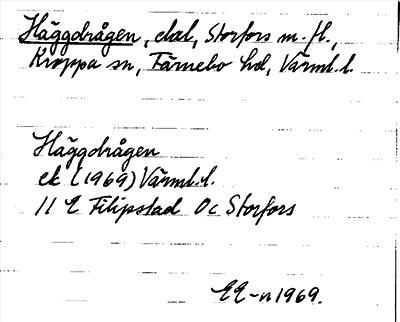 Häggdrågen, del, Storfors m. fl.,
Kroppa sn, Färnebo hd, Värml. l.
Häggdrågen
ek (1969) Värml. l.
11 E Filipstad 0c Storfors
EE-n 1969.